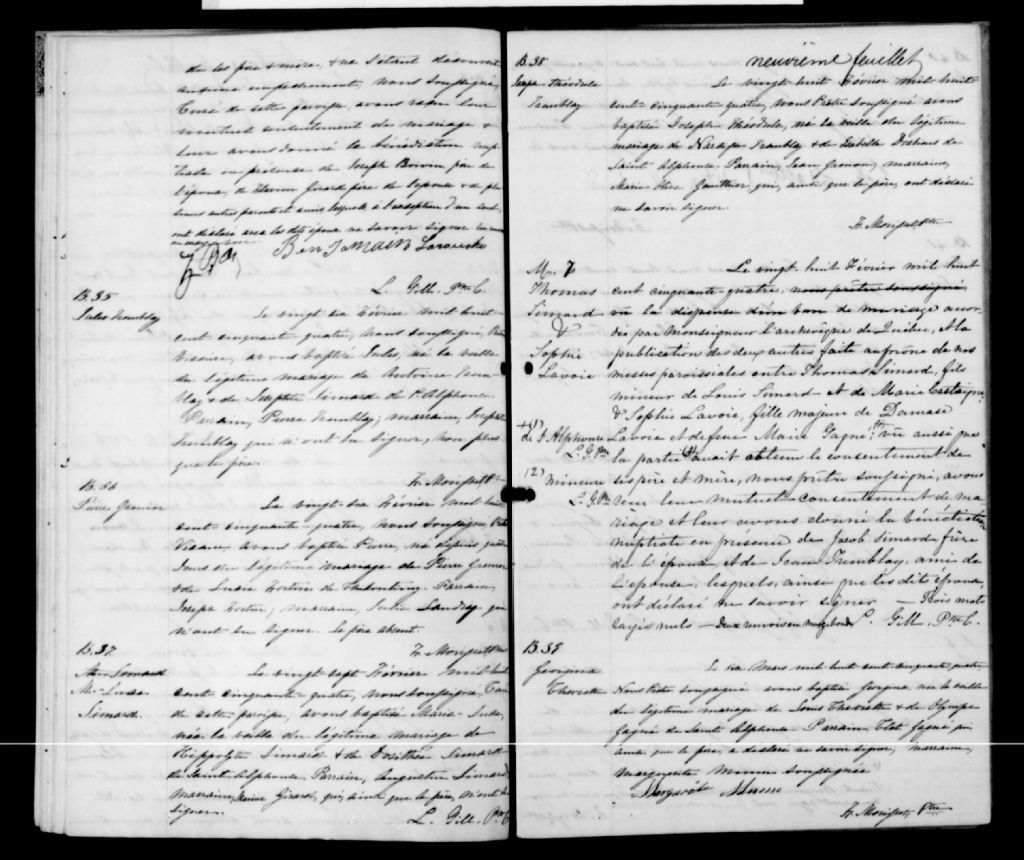 de les père & mère, & ne s'étant découvert
aucun empêchement, nous soussigné,
Curé de cette paroisse, avons reçu leur
mutuel consentement de mariage &
leur avons donné la bénédiction nup
tiale en présence de Joseph Boivin, père de
l'épouse, de Girard père de l'épouse & de plu
sieurs autres parents et amis lesquels à l'exception d'un seul,
ont déclaré avec les dits époux ne savoir signer
Benjamain Larouche
L. Gill. Ptre C.
B. 35
Jules Tremblay
Le vingt six Février mil huit
cent cinquante quatre, nous soussigné, Prêtre
Vicaire, avons baptisé Jules, né la veille
du légitime mariage de Antoine Trem
blay & de Simard de St. Alphonse
Parrain, Pierre Tremblay, marraine,
Tremblay qui n'ont su signer, non plus
que le père.
B. 36
Pierre Grenier
Le vingt-six Février mil huit
cent cinquante-quatre, nous soussigné, Ptre
Vicaire avons baptisé Pierre, né depuis quatre
jours du légitime mariage de Pierre Grenier
& de Luce Fortin de Parrain,
Joseph Fortin, marraine, Julie Landry qui
n'ont su signer. Le père absent.
B. 37.
M. Luce
Simard.
Le vingt sept Février mil huit
cent cinquante-quatre, nous soussigné, Curé
de cette paroisse, avons baptisé Marie-Luce,
née la veille du légitime mariage de
Hippolyte Simard & de Dosithée Simard
de Saint Alphonse. Parrain, Augustin Simard,
marraine, Girard, qui, ainsi que le père, n'ont su
signer.
L. Gill. Ptre C
neuvième feuillet
B. 38
Joseph Théodule
Tremblay
Le vingt huit Février mil huit
cent cinquante quatre, Nous Prêtre soussigné avons
baptisé Joseph Théodule, né la veille du légitime
mariage de Tremblay & de de
Saint Alphonse. Parrain, Jean marraine,
Marie Gauthier qui, ainsi que le père, ont déclaré
ne savoir signer.
M. 7
Thomas
Simard
&
Sophie
Lavoie
Le vingt-huit Février mil huit
cent cinquante-quatre, nous prêtre soussigné
vu la dispense d'un ban de mariage accor-
dée par Monseigneur l'archevêque de Québec, et la
publication des deux autres faite au prône de nos
messes paroissiales entre Thomas Simard, fils
mineur de Louis Simard et de Marie Castaigne,
& Sophie Lavoie, fille majeure de Damase
+(1)
de St Alphonse
L. G. Ptre
Lavoie et de feue Marie Gagné; vu aussi que
la partie avait obtenu le consentement de
(2)
mineure
L. G. Ptre
ses père et mère, nous prêtre soussigné, avons
reçu leur mutuel consentement de ma
riage et leur avons donné la bénédiction
nuptiale en présence de Jacob Simard, frère
de l'époux, et de Jean Tremblay, ami de
l'épouse, lesquels, ainsi que les dits époux,
ont déclaré ne savoir signer — Trois mots
rayés nuls — Deux renvois en marge bons. L. Gill. Ptre C.
B. 39
Georgina
Theriette
Le six Mars mil huit cent cinquante quatre
Nous Prêtre soussigné avons baptisé Georgina née la veille
du légitime mariage de Louis & de Olympe
Gagné de Saint Alphonse. Parrain Gagné qui
ainsi que le père, a déclaré ne savoir signer, marraine,
Marguerite soussignée
Margaret